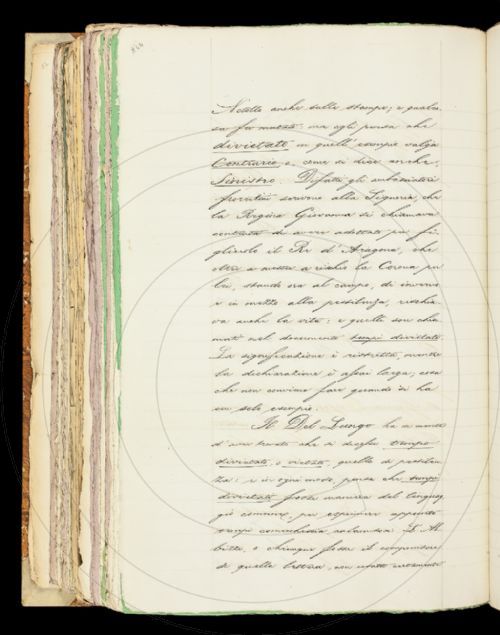 Notello anche sulle stampe; e qualco
sa fu mutato: ma egli pensa che
divietato in quell' esempio valga
Contrario, o, come si dice anche,
Sinistro. Difatti gli ambasciatori
fiorentini scrivono alla Signoria, che
la Regina Giovanna si chiamava
contenta di avere adottato per fi-
gliuolo il Re d'Aragona, che
oltre a mettere a rischio la Corona per
lei, stando ora al campo, di inverno
e in mezzo alla pestilenza, rischia-
va anche la vita: e quelli son chia
mati nel documento tempi divietati.
La significazione è ristretta, mentre
la dichiarazione è assai larga; cosa
che non conviene fare quando si ha
un solo esempio.
Il Del Lungo ha a mente
d'aver trovato che si dicesse tempo
divietato, o vietato, quello di pestilen
za: e in ogni modo, pensa che tempi
divietati fosse maniera del linguag
gio comune, per esprimere appunto
tempi
bizzi, o chiunque fosse il compositore
di quella lettera, non